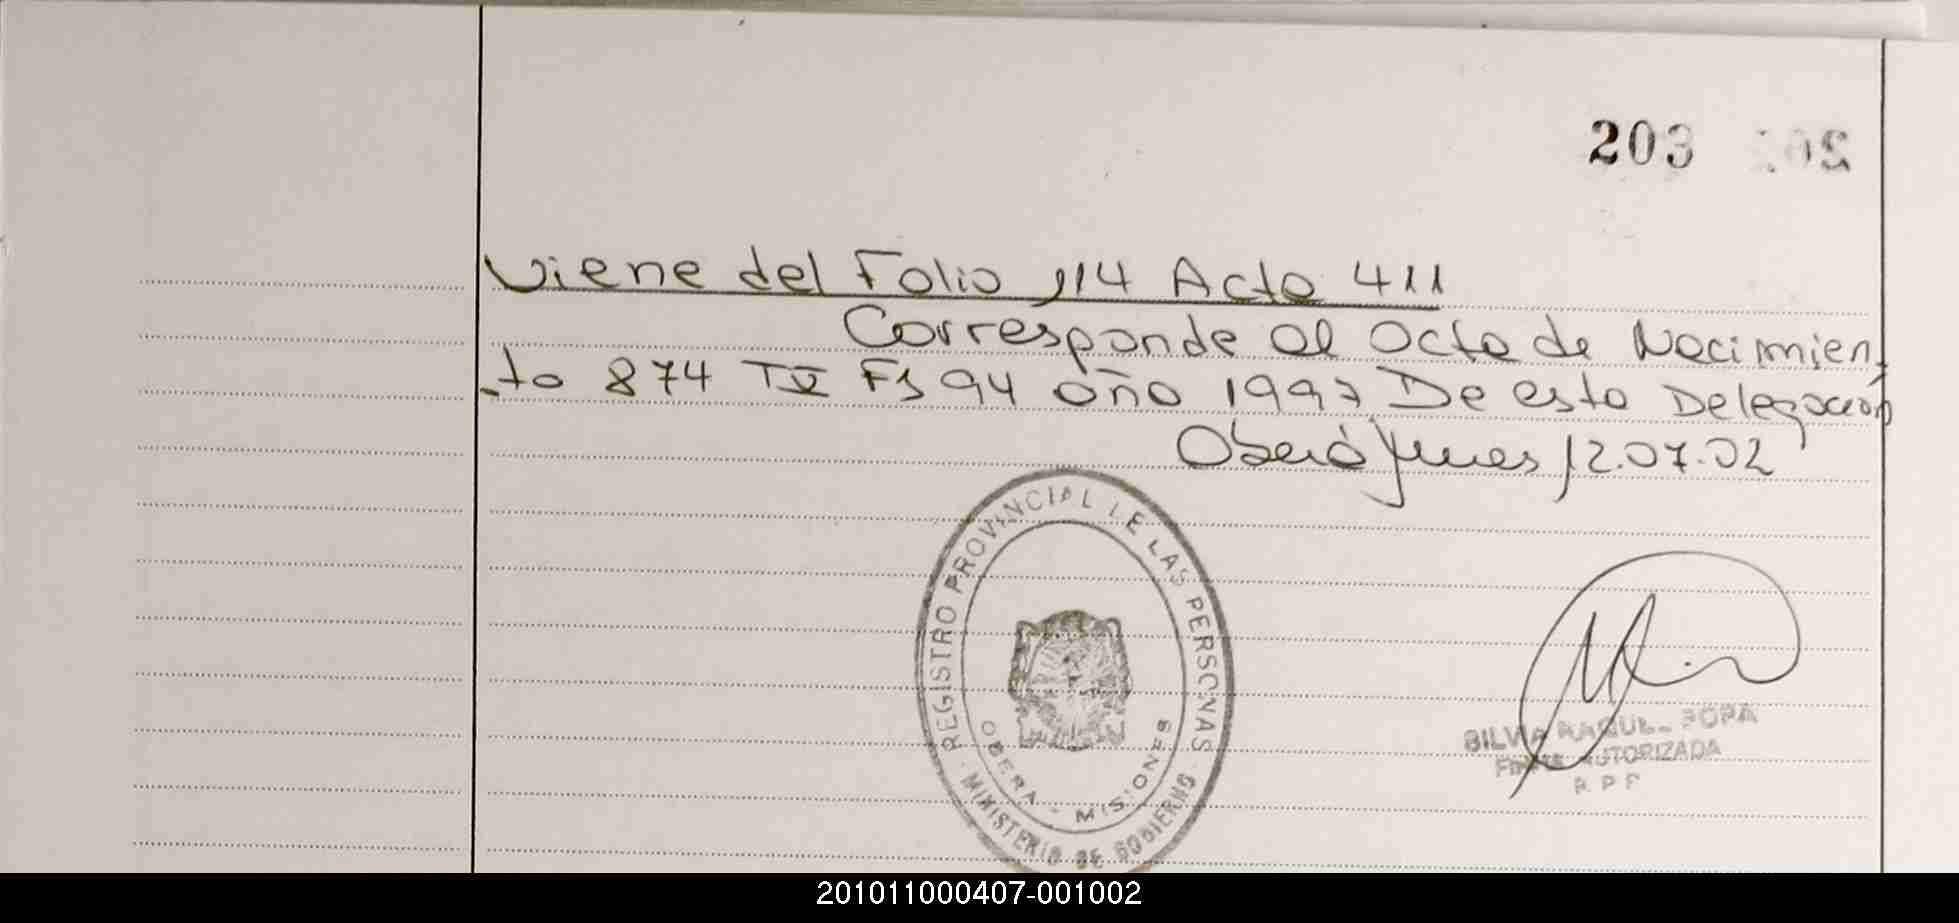 203
Viene del Folio 114 Acta 411
Corresponde al acta de Nacimien
to 874 T V Fs 94 año 1997 De esta Delegación
Oberá Mnes 12.07.02
REGISTRO PROVINCIAL DE LAS PERSONAS
OBERA - MISIONES
MINISTERIO DE GOBIERNO
SILVIA RAQUEL
FIRMA AUTORIZADA
R P P
201011000407-001002